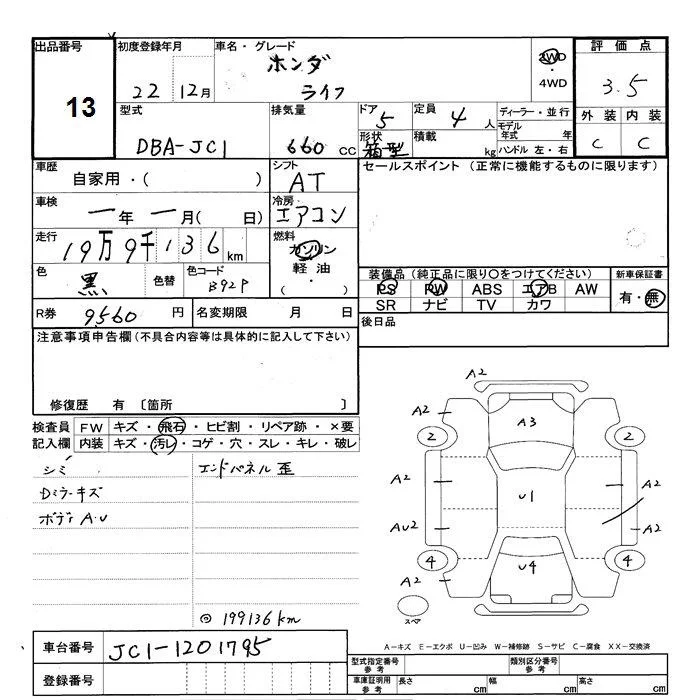 出品番号
13
初度登録年月
22 12月
車名・グレード
ホンダ
ライフ
2WD
・
4WD
評価点
3.5
外装 内装
C C
型式
DBA-JC1
排気量
660 CC
ドア
5
形状
箱型
定員
4人
積載
kg
ディーラー・並行
モデル年式 年
ハンドル 左・右
車歴
自家用・( )
シフト
AT
セールスポイント (正常に機能するものに限ります)
車検
一年 一月( 日)
冷房
エアコン
走行
19万9千136km
燃料
ガソリン
軽油
・
( )
色
黒
色替
色コード
B92P
装備品 (純正品に限り〇をつけてください)
PS PW ABS エアB AW
SR ナビ TV カワ
新車保証書
有・無
R券
9560 円
名変期限 月 日
後日品
注意事項申告欄 (不具合内容等は具体的に記入して下さい)
修復歴 有 〔箇所 〕
検査員
記入欄
FW キズ・飛石・ヒビ割・リペア跡・×要
内装 キズ・汚レ・コゲ・穴・スレ・キレ・破レ
シミ
Dミラーキズ
ボディA.U
エンドパネル歪
◎199136km
A2
A2
A3
A2
2
2
A2
U1
A2
AU2
A2
4
U4
4
A2
A2
スペア
A-キズ E-エクボ U-凹み W-補修跡 S-サビ C-腐食 XX-交換済
車台番号
JC1-1201795
登録番号
型式指定番号
参考
類別区分番号
参考
車庫証明用
参考
長さ cm
幅 cm
高さ cm